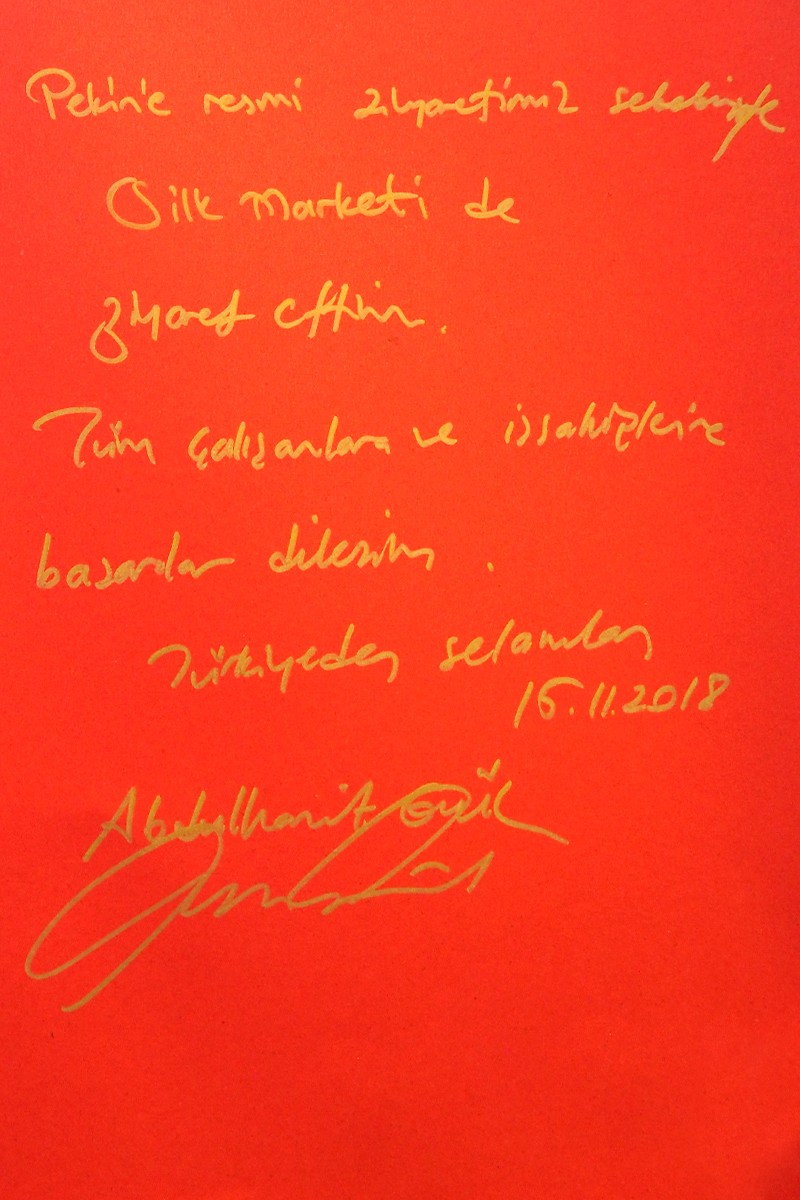 Pekin'e resmi ziyaretimiz sebebiyle
Silk Marketi de
ziyaret ettim.
Tüm çalışanlara ve işsahiplerine
başarılar dilerim.
Türkiyeden selamlar
16.11.2018
Abdulhamit Gül